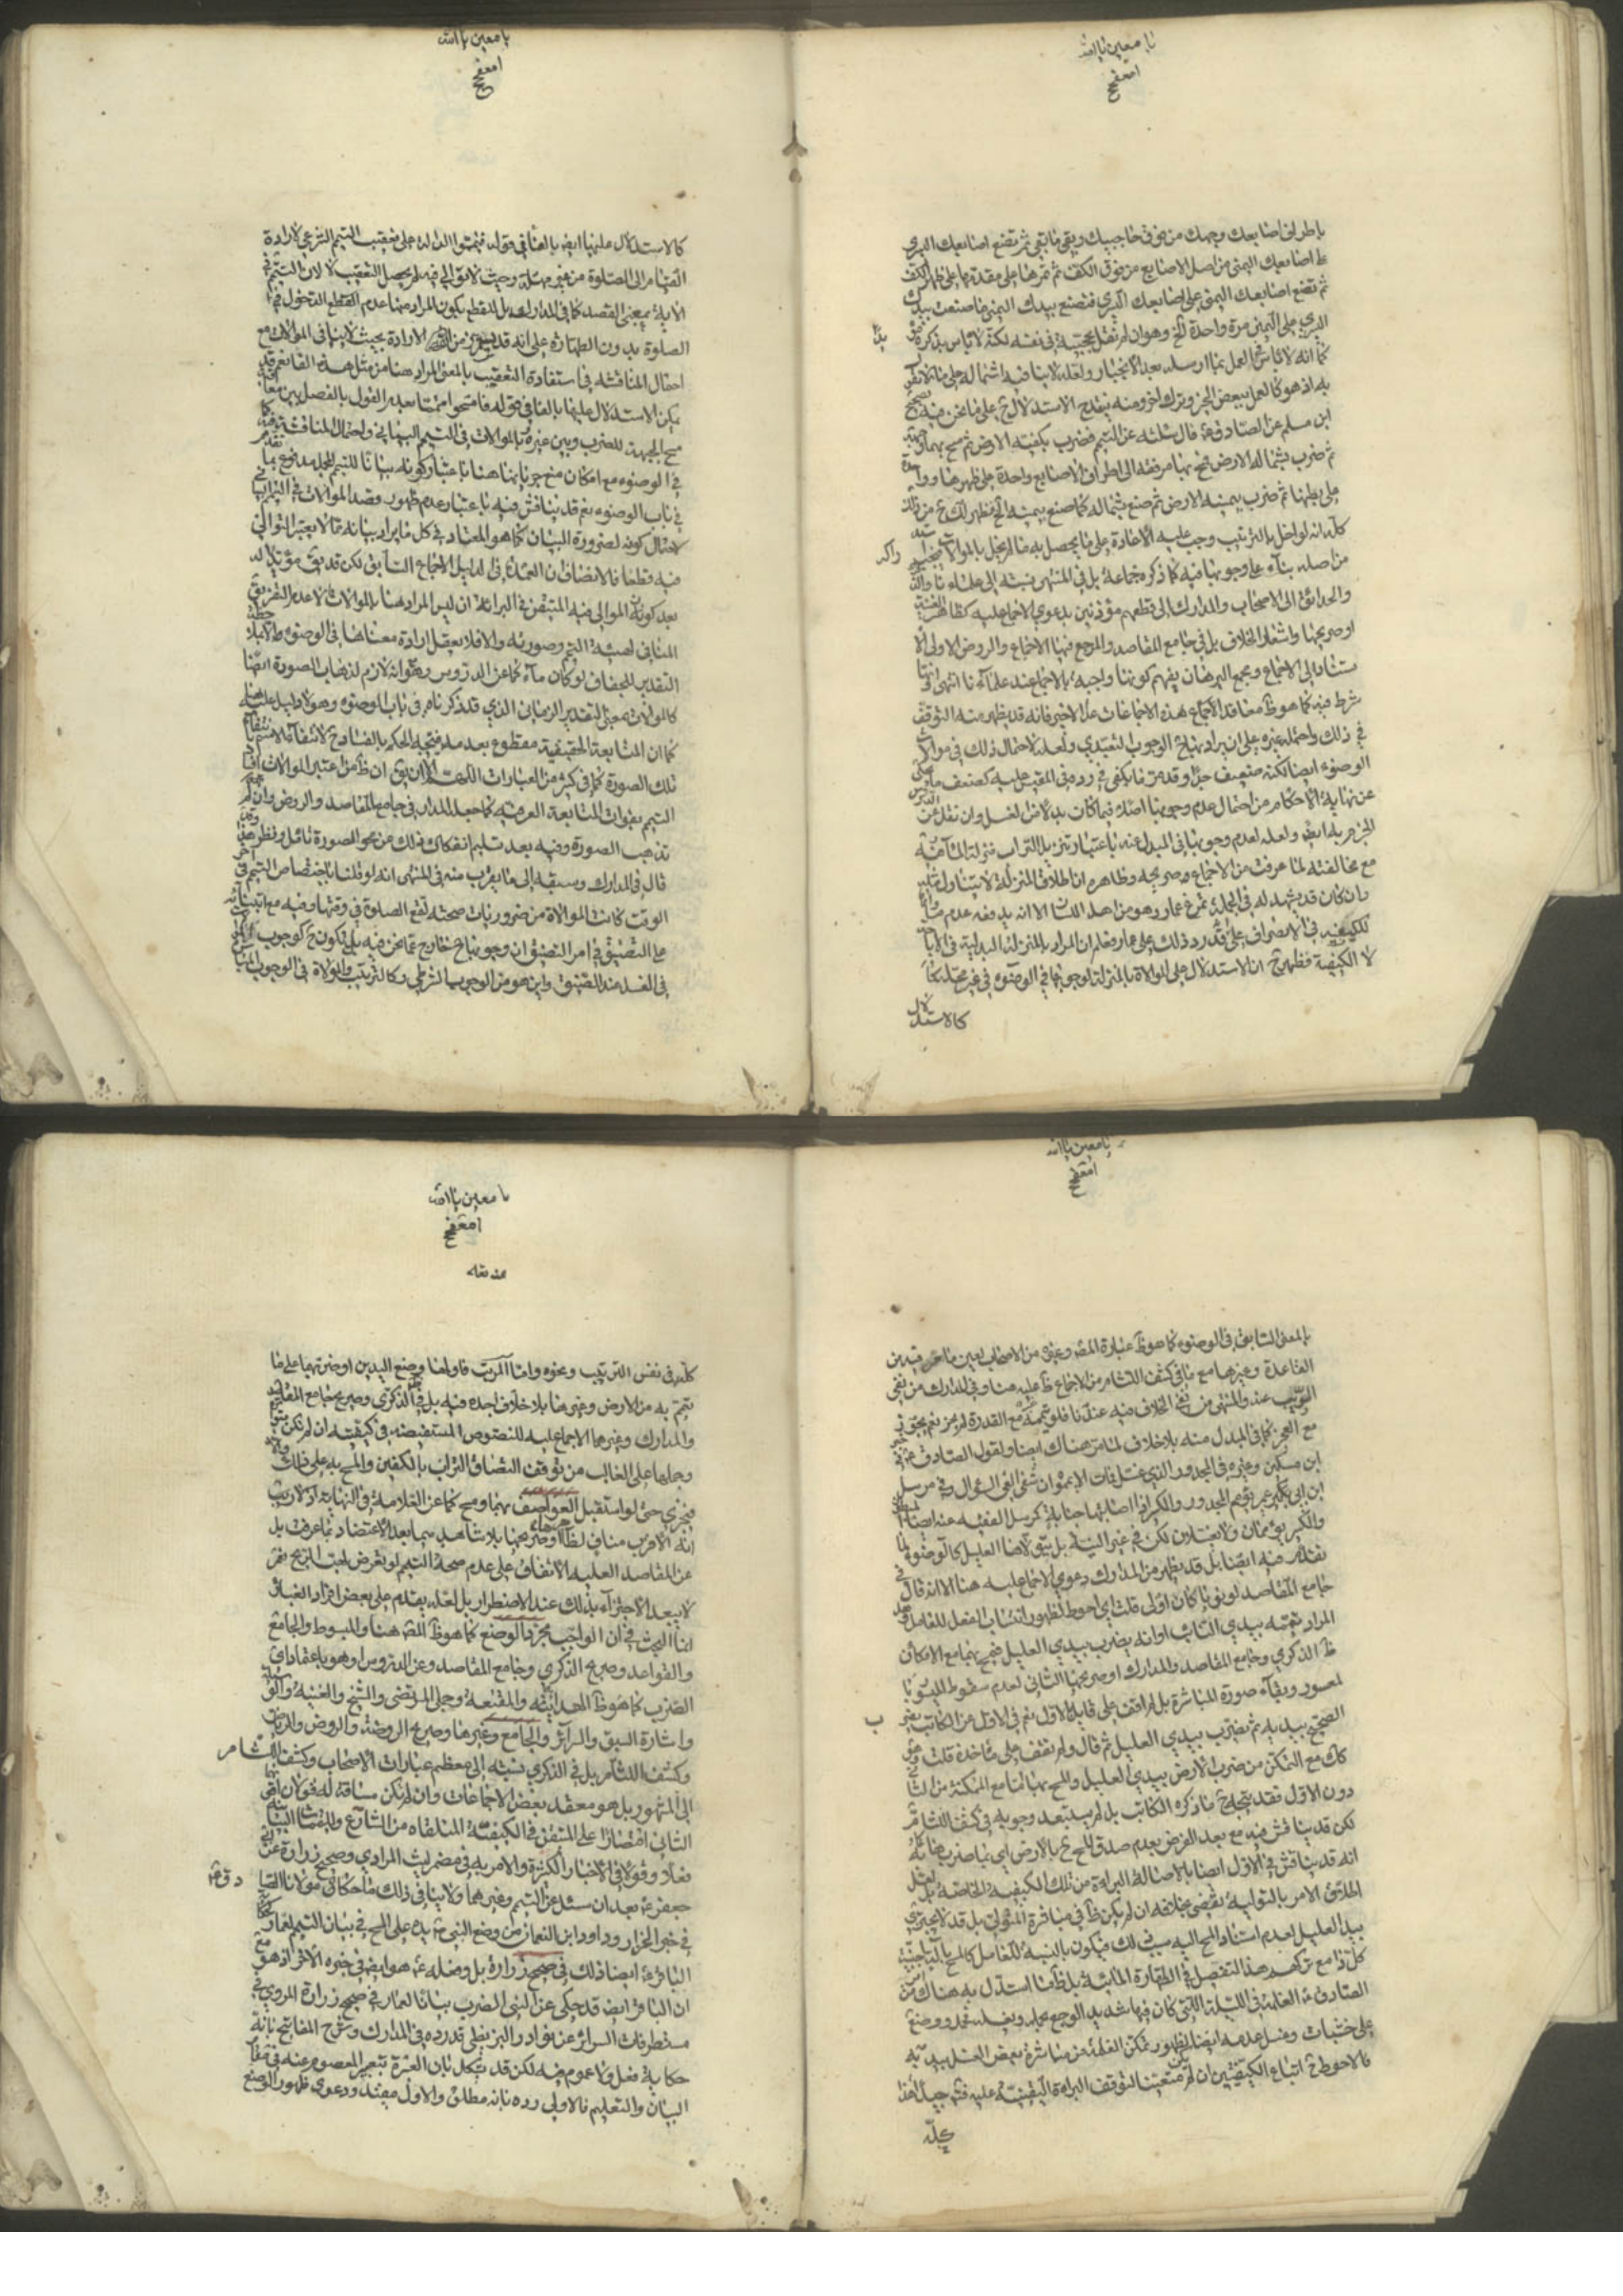 يا معين يا الله
باطراف اصابعك وجهك من فوق حاجبيك وبقى ما بقى ثم تضع اصابعك اليسرى
على اصابعك اليمنى من اصل الاصابع من فوق الكف ثم تمرها على مقدمها على ظهر الكف
ثم تضع اصابعك اليمنى على اصابعك اليسرى فتصنع بيدك اليمنى ما صنعت بيدك
اليسرى على اليمنى مرة واحدة الخ وهو ان لم نقل بحجيته في نفسه لكنه لا باس بذكره
كما انه لا باس العمل بما ارسله بعد الانجبار ولعله لا ينافيه اشتماله على ما لا نقول
به اذ هو كالعمل ببعض الخبر وترك اخر ومنه ينقدح الاستدلال ح على ما نحن فيه بصحيح
ابن مسلم عن الصادق ع قال سئلته عن التيمم فضرب بكفيه الارض ثم مسح بهما وجهه
ثم ضرب بشماله الارض فمسح بها مرفقه الى اطراف الاصابع واحدة على ظهرها وواحدة
على بطنها ثم ضرب بيمينه الارض ثم صنع بشماله كما صنع بيمينه الخ فظهر لك ح من ذلك
كله انه لو اخل بالترتيب وجب عليه الاعادة على ما يحصل به ما لم يخل بالموالاة
من اصله بناء على وجوبها فيه كما ذكره جماعة بل في المنتهى نسبته الى علمائنا
والحدائق الى الاصحاب والمدارك الى قطعهم مؤذنين بدعوى الاجماع عليه كظاهر الغنية
او صريحها واشعار الخلاف بل في جامع المقاصد والمرجع فيها الاجماع والروض الاولى
استنادا الى الاجماع ومجمع البرهان يفهم كونها واجبة بالاجماع عند علمائنا انتهى
شرط فيه كما هو ظ معاقد الاجماع هذه الاجماعات عدا الاخير فانه قد يظهر منه التوقف
في ذلك واحتمله غيره على ان يراد بها ح الوجوب التعبدي ولعله لاحتمال ذلك في موالاة
الوضوء ايضا لكنه ضعيف جدا وقد مر ما يكفي في رده في المقيس عليه كضعف ما
عن نهاية الاحكام من احتمال عدم وجوبها اصلا فيما كان بدلا من الغسل وان نقل عن الدروس
الجزم به ايضا ولعله لعدم وجوبها في المبدل عنه باعتبار تنزيل التراب منزلة المائية
مع مخالفته لما عرفت من الاجماع وصريحه وظاهره ان اطلاق المنزلة لا يتناول مثله
وان كان قد يشهد له في الجملة تمرغ عمار وهو من اهل اللسان الا انه يدفعه عدم
للكيفية في الانصراف على قدر رد ذلك على عمار فعلم ان المراد بالمنزلة البدلية في الاباحة
لا الكيفية فظهر ح ان الاستدلال على الموالاة بالمنزلة لوجوبها في الوضوء في غير محله
كالاستدلال
يا معين يا الله
كالاستدلال عليها ايضا بالفاء في قوله فتيمموا الدالة على تعقيب التيمم الشرعي لارادة
القيام الى الصلوة من غير مهلة وحيث لا توالي فيه لم يحصل التعقيب لا لان التيمم في
الاية بمعنى القصد كما في المدارك بل للقطع بكون المراد منها عدم القطع الدخول في
الصلوة بدون الطهارة على انه قد الارادة بحيث لا ينافي الموالات مع
احتمال المناقشة في استفادة التعقيب بالمعنى المراد هنا من مثل هذه الفاء نعم قد
يمكن الاستدلال عليها بالفاء في قوله فامسحوا متمما بعدم القول بالفصل بين معاقبة
مسح الجبهة للضرب وبين غيره وبالموالات في التيمم البياني واحتمال المناقشة فيه كما تقدم
في الوضوء مع امكان منع جريانها هنا باعتبار كونه بيانا للتيمم المجمل مدفوع بما
في باب الوضوء نعم قد يناقش فيه باعتبار عدم ظهور وقصد الموالات في التيمم البياني
لاحتمال كونه لضرورة البيان كما هو المعتاد في كل ما يراد بيانه مما لا يعتبر التوالي
فيه قطعا فالانصاف ان العمدة في الدليل الاجماع السابق لكن قد يق مؤيدا له
بعد كونه الموالى فيه المتيقن في البراءة ان ليس المراد هنا بالموالات الا عدم التفريق
المنافي لهيئة التيمم وصورته والا فلا يعقل ارادة معناها في الوضوء ملاحظة
التقدير للجفاف لو كان ماء كما عن الدروس وهو انه لازم لذهاب الصورة ايضا
كالموالات بمعنى التقدير الزماني الذي قد ذكرناه في باب الوضوء وهو لا دليل عليه هنا
كما ان المتابعة الحقيقية مقطوع بعدمه فيتجه الحكم بالفساد ح لانتفائها لانتفاء
تلك الصورة كما في كثير من العبارات اللهم الا ان يق ان ظ من اعتبر الموالات في
التيمم بعنوان المتابعة العرفية كما جعله المدار في جامع المقاصد والروض وان لم
تذهب الصورة وفيه بعد تسليم انفكاك ذلك عن محو الصورة تامل ونظر
قال في المدارك وسبقه الى ما يقرب منه في المنتهى انه لو قلنا باختصاص التيمم في اخر
الوقت كانت الموالاة من ضروريات صحته لتقع الصلوة في وقتها وفيه مع ابتنائه
على التضيق في امر التضيق ان وجوبها ح خارج عما نحن فيه بل تكون ح كوجوب
في الغسل عند الضيق واين هو من الوجوب الشرطي وكالترتيب والموالاة في الوجوب
يا معين يا الله
بالمعنى السابق في الوضوء كما هو ظ عبارة المص وغيره من الاصحاب لعين ما مر فيه من
القاعدة وغيرها مع ما في كشف اللثام من الاجماع ظ عليه هنا وفي المدارك من نفي
الريب عنه والمنتهى من نفي الخلاف فيه عندنا فلو يممه غيره مع القدرة لم يجز نعم يجوز
مع العجز كما في المبدل منه بلا خلاف لما مر هناك ايضا ولقول الصادق ع في خبر
ابن مسكين وغيره في المجدور الذي غسل فمات الا يمموه ان شفاء العي السؤال وفي مرسل
ابن ابي عمير يؤمم المجدور والكسير اذا اصابتهما جنابة كمرسل الفقيه عنه ايضا المبطون
والكسير يؤممان ولا يغسلان لكن في غير النية بل يتولاها العليل كالوضوء لما
تقدم فيه ايضا بل قد يظهر من المدارك دعوى الاجماع عليه هنا الا انه قال في
جامع المقاصد لو نويا كان اولى قلت اي احوط لظهور انتساب الفعل للفاعل وهل
المراد تيممه بيدي النائب او انه يضرب بيدي العليل فيمسح بهما مع الامكان
ظ الذكرى وجامع المقاصد والمدارك او صريحها الثاني لعدم سقوط الميسور با
لمعسور وبقاء صورة المباشرة بل لم اقف على قابل الاول نعم في الاول عن الكاتب يضرب
الصحيح بيديه ثم يضرب بيدي العليل ثم قال ولم نقف على ماخذه قلت وهو
كك مع التمكن من ضرب الارض بيدي العليل والمسح بهما اما مع المكنة من الثاني
دون الاول فقد يتجه ح ما ذكره الكاتب بل لم يستبعد وجوبه في كشف اللثام
لكن قد يناقش فيه مع بعد الفرض بعدم صدق المسح ح بالارض اي بما ضرب بها كما
انه قد يناقش في الاول ايضا بالاصالة البراءة من تلك الكيفية الخاصة بل لعل
اطلاق الامر بالتولية يقضي بخلافه ان لم يكن ظ في مباشرة المتولى بل قد لا يجتزي
بيد العليل لعدم اسناد المسح اليه بسبب ذلك فيكون بالنسبة للفاعل كالمسح بالة اجنبية
كل ذا مع تركهم هذا التفصيل في الطهارة المائية بل ظ ما استدل به هناك من
الصادق ع الغلمة في الليلة اللتي كان فيها شديد الوجع بحمله وبغسله فحمل ووضع
على خشبات وغسل عدمه ايضا لظهور تمكن الغلمة من مباشرة بعض الغسل بيديه
فالاحوط ح اتباع الكيفيتين ان لم يتعينا لتوقف البراءة اليقينية عليه فتدبر جيدا هذا
كله
يا معين يا الله
كله في نفس الترتيب ونحوه واما المرتب فاولها وضع اليدين او ضربهما على ما
يتيمم به من الارض وغيرها بلا خلاف اجده فيه بل في ظ الذكرى وصريح جامع المقاصد
والمدارك وغيرها الاجماع عليه للنصوص المستفيضة في كيفيته ان لم تكن متواترة
وحملها على الغالب من توقف التصاق التراب بالكفين والمسح به على ذلك
فيجزي حتى لو استقبل العواصف بهما ومسح كما عن العلامة في النهاية اذ لا ريب
انه الاقرب مناف لظاهرها او صريحها بلا شاهد سيما بعد الاعتضاد بما عرفت بل
عن المقاصد العلية الاتفاق على عدم صحة التيمم لو تعرض لمهب الريح نعم
لا يبعد الاجتزاء بذلك عند الاضطرار بل لعله يقدم على بعض افراد الغبار
انما البحث في ان الواجب مجرد الوضع كما هو ظ المص هنا والمبسوط والجامع
والقواعد وصريح الذكرى وجامع المقاصد وعن الدروس او هو باعتماد اي
الضرب كما هو ظ الهداية والمقنعة وجمل المرتضى والشيخ والغنية والوسيلة
واشارة السبق والسرائر والجامع وغيرها وصريح الروضة والروض والرياض
وكشف اللثام بل في الذكرى نسبته الى معظم عبارات الاصحاب وكشف اللثام
الى المشهور بل هو معقد بعض الاجماعات وان لم تكن مساقة له قولان اقويهما
الثاني اقتصارا على المتيقن في الكيفية المتلقاة من الشارع والبيانية
فعلا وقولا في الاخبار الكثيرة والامر به في مضمر ليث المرادي وصحيح زرارة عن
جعفر ع بعد ان سئل عن التيمم وغيرهما ولا ينافي ذلك ما حكاه مولانا الصادق ع
في خبر الخزاز وداود ابن النعمان من وضع النبي ص يده على المسح في بيان التيمم لعمار
الباقر ع ايضا ذلك في صحيح زرارة بل وفعله ع هو ايضا في خبره الاخر اذ هو مع
ان الباقر ايضا قد حكى عن النبي الضرب بيانا لعمار في صحيح زرارة المروي في
مستطرفات السرائر عن نوادر البزنطي قد رده في المدارك وشرح المفاتيح بانه
حكاية فعل ولا عموم فيه لكن قد يشكل بان العبرة بتعبير المعصوم عنه في مقام
البيان والتعليم فالاولى رده بانه مطلق والاول مقيد ودعوى ظهور الوضع